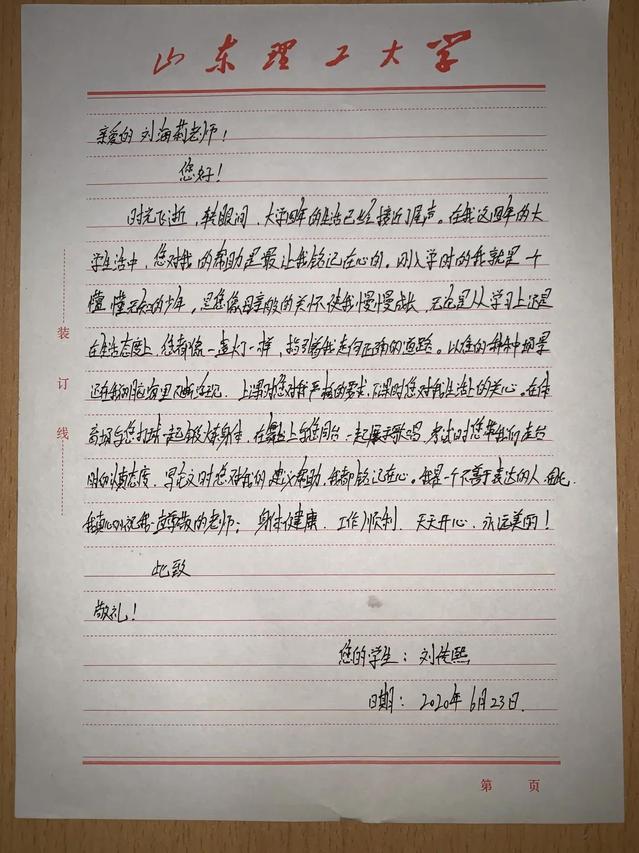 山东理工大学
亲爱的刘海菊老师！
您好！
时光飞逝，转眼间，大学四年的生活已经接近了尾声。在我这四年的大
学生活中，您对我的帮助是最让我铭记在心的。刚入学时的我就是一个
懵懂无知的少年，是您像母亲般的关怀使我慢慢成长，无论是从学习上还是
在生活态度上，您都像一盏灯一样，指引着我走向正确的道路。以往的种种场景
还在我的脑海里不断浮现，上课时您对我严格的要求，下课时您对我生活上的关心。在体
育场与您打球一起锻炼身体，在舞台上与您同台一起展示歌唱，考试时您帮我们
时的认真态度，写论文时您对我的建议帮助，我都铭记在心。我是一个不善于表达的人，在此，
我真心的祝我一直尊敬的老师：身体健康，工作顺利，天天开心，永远美丽！
此致
敬礼！
您的学生：刘传熙
日期：2020年6月23日.
装
订
线
第 页